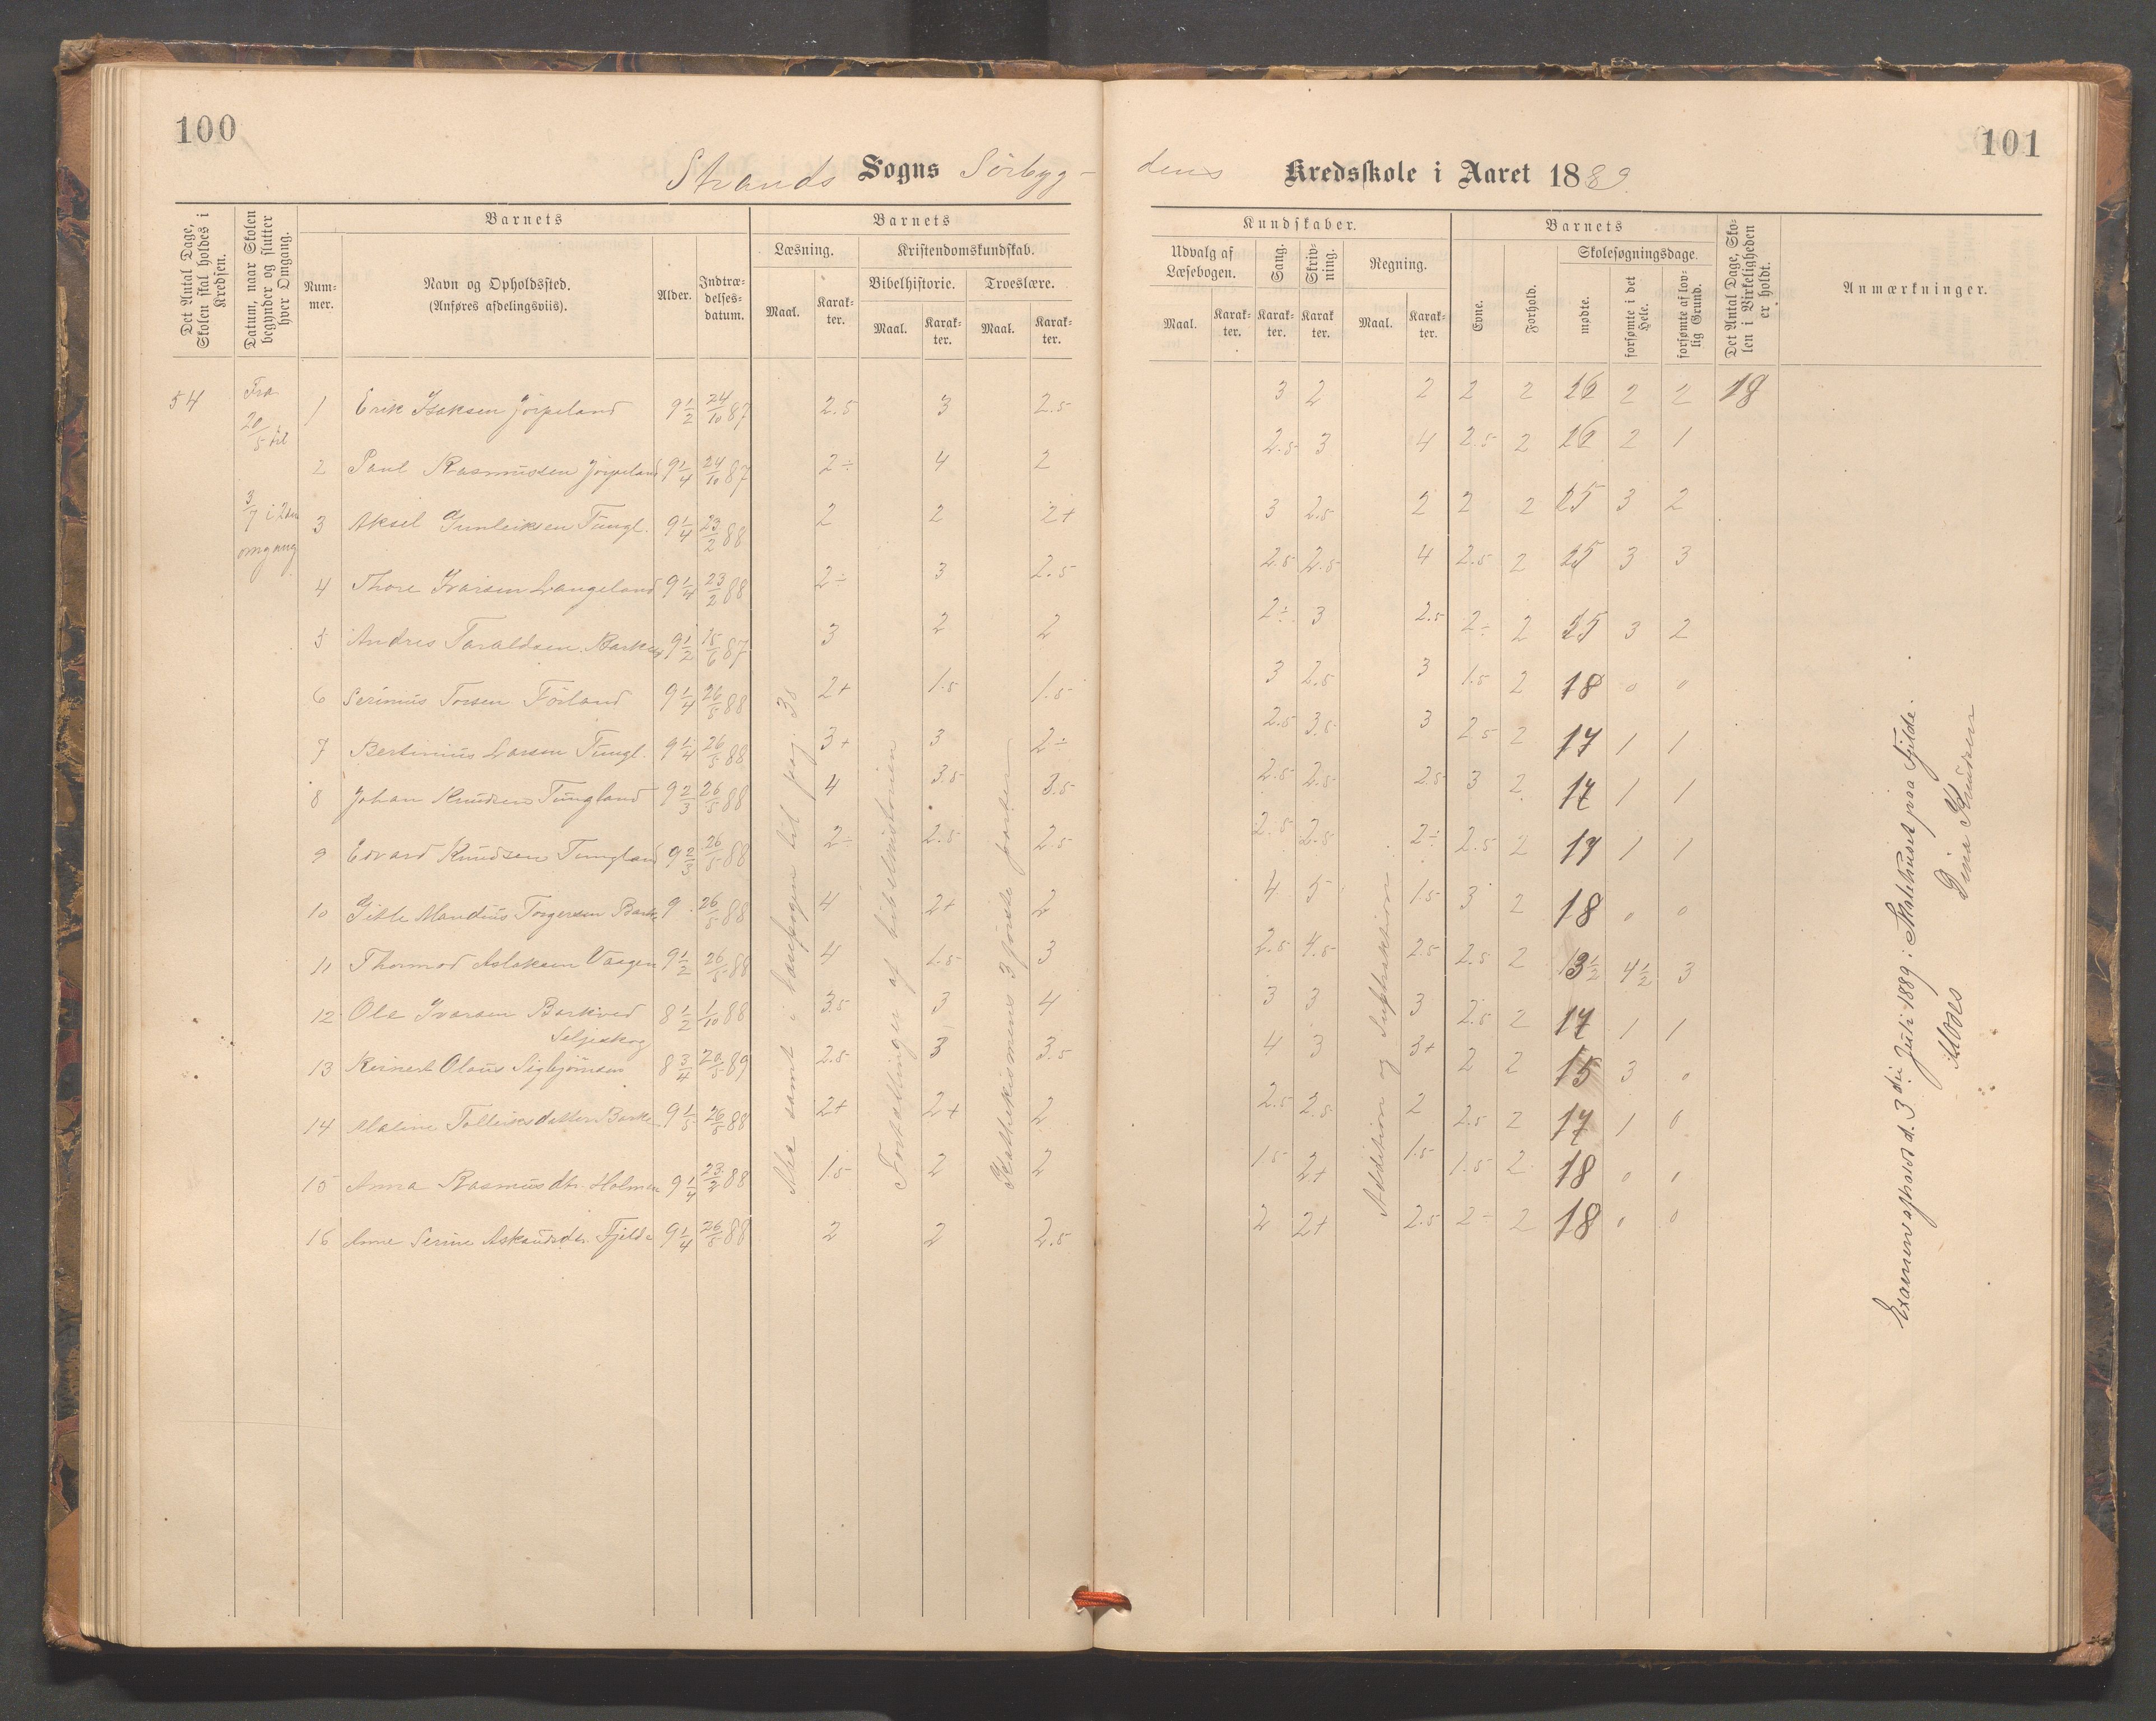 100
Strands Sogns Sörbyg-
Det Antal Dage, Skolen skal holdes i Kredsen.
Datum, naar Skolen begynder og slutter hver Omgang.
Barnets
Barnets
Num-mer.
Navn og Opholdssted.
(Anføres afdelingsviis).
Alder.
Indtræ-delses-datum.
Læsning.
Kristendomskundskab.
Maal.
Karak-ter.
Bibelhistorie.
Troeslære.
Maal.
Karak-ter.
Maal.
Karak-ter.
54 Fra 20/5 til 3/7 i 2den omgang
1 Erik Isaksen Jörpeland 9 1/2 24/10 87 2.5 3 2.5
2 Paul Rasmussen Jörpeland 9 1/4 24/10 87 2÷ 4 2
3 Aksel Gunleiksen Tungl. 9 1/4 23/2 88 2 2 2+
4 Thore Ivarsen Langeland 9 1/4 23/2 88 2÷ 3 2.5
5 Andres Taraldsen 9 1/2 15/6 87 3 2 2
6 Serinius Torsen Förland 9 1/4 26/5 88 2+ 1.5 1.5
7 Bertinius Larsen Tungl. 9 1/4 26/5 88 3+ 3 2÷
8 Johan Knudsen Tungland 9 2/3 26/5 88 4 3.5 3.5
9 Edvard Knudsen Tungland 9 2/3 26/5 88 2÷ 2.5 2.5
10 Gitle Mandius Torgersen Bark. 9 26/5 88 4 2+ 2
11 Thormod Aslaksen Vaagen 9 1/2 26/5 88 4 1.5 3
12 Ole Ivarsen Barkved 8 1/2 1/10 88 3.5 3 4
Seljeskog
13 Reinert Olaus Sigbjörnsen 8 3/4 20/5 89 2.5 3 3.5
14 Malene Tolleiksdatter Barke 9 1/5 26/5 88 2+ 2+ 2
15 Anna Rasmusdtr. Holmen 9 1/4 23/2 88 1.5 2 2
16 Anne Serine Askaudsdr. Fjelde 9 1/4 26/5 88 2 2 2.5
samt i Læsebogen til pag. 38
Fortællinger af bibelhistorien
Kattekismens 3 förste parter
101
dens Kredsskole i Aaret 1889.
Kundskaber.
Barnets
Udvalg af Læsebogen.
Sang.
Skriv-ning.
Regning.
Evne.
Forhold.
Skolesøgningsdage.
Det Antal Dage, Sko-len i Virkeligheden er holdt.
Anmærkninger.
Maal.
Karak-ter.
Karak-ter.
Karak ter.
Maal.
Karak-ter.
mødte.
forsømte i det Hele.
forsømte af lov-lig Grund.
3 2 2 2 2 16 2 2 18
2.5 3 4 2.5 2 16 2 1
3 2.5 2 2 2 15 3 2
2.5 2.5 4 2.5 2 15 3 3
2÷ 3 2.5 2÷ 2 15 3 2
3 2.5 3 1.5 2 18 0 0
2.5 3.5 3 2.5 2 17 1 1
2.5 2.5 2.5 3 2 17 1 1
2.5 2.5 2÷ 2.5 2 17 1 1
4 5 1.5 3 2 18 0 0
2.5 4.5 2.5 2.5 2 13 1/2 4 1/2 3
3 3 3 2.5 2 17 1 1
4 3 3+ 2 2 15 3 0
2.5 2.5 2 2.5 2 17 1 0
1.5 2+ 1.5 1.5 2 18 0 0
2 2+ 2.5 2÷ 2 18 0 0
Addition og Subtraktion
Examen afholdt d. 3die Juli 1889 i Skolehuset paa Fjelde.
Dina Knudsen